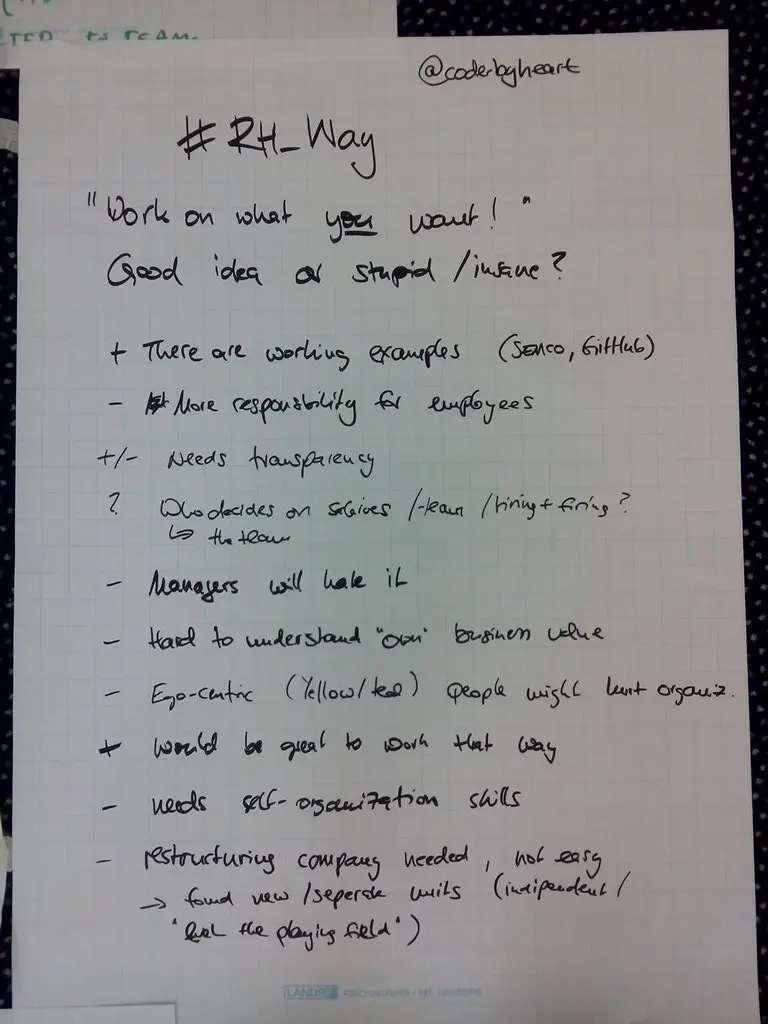 TED to TEAM.
@coderbyheart
#RH_Way
"Work on what you want!"
Good idea or stupid/insane?
+ There are working examples (Semco, GitHub)
- More responsibility for employees
+/- Needs transparency
? Who decides on salaries /-team /hiring + firing?
↳ the team
- Managers will hate it
- Hard to understand "own" business value
- Ego-centric (Yellow/teal) people might hurt organiz.
+ would be great to work that way
- needs self-organization skills
- restructuring company needed, not easy
→ found new/seperate units (indipendent/
the playing field")
LANDRÉ